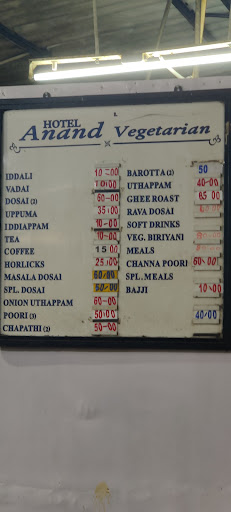 HOTEL
Anand Vegetarian
IDDALI 10-00
VADAI 10:00
DOSAI (2) 50-00
UPPUMA 35:00
IDDIAPPAM 10-00
TEA 10-00
COFFEE 15 00
HORLICKS 25:00
MASALA DOSAI 60/00
SPL. DOSAI 50/00
ONION UTHAPPAM 60-00
POORI (3) 50:00
CHAPATHI (2) 50-00
BAROTTA (2) 50
UTHAPPAM 40-00
GHEE ROAST 65 00
RAVA DOSAI
SOFT DRINKS
VEG. BIRIYANI
MEALS
CHANNA POORI 60:00
SPL. MEALS
BAJJI 10:00
40/00